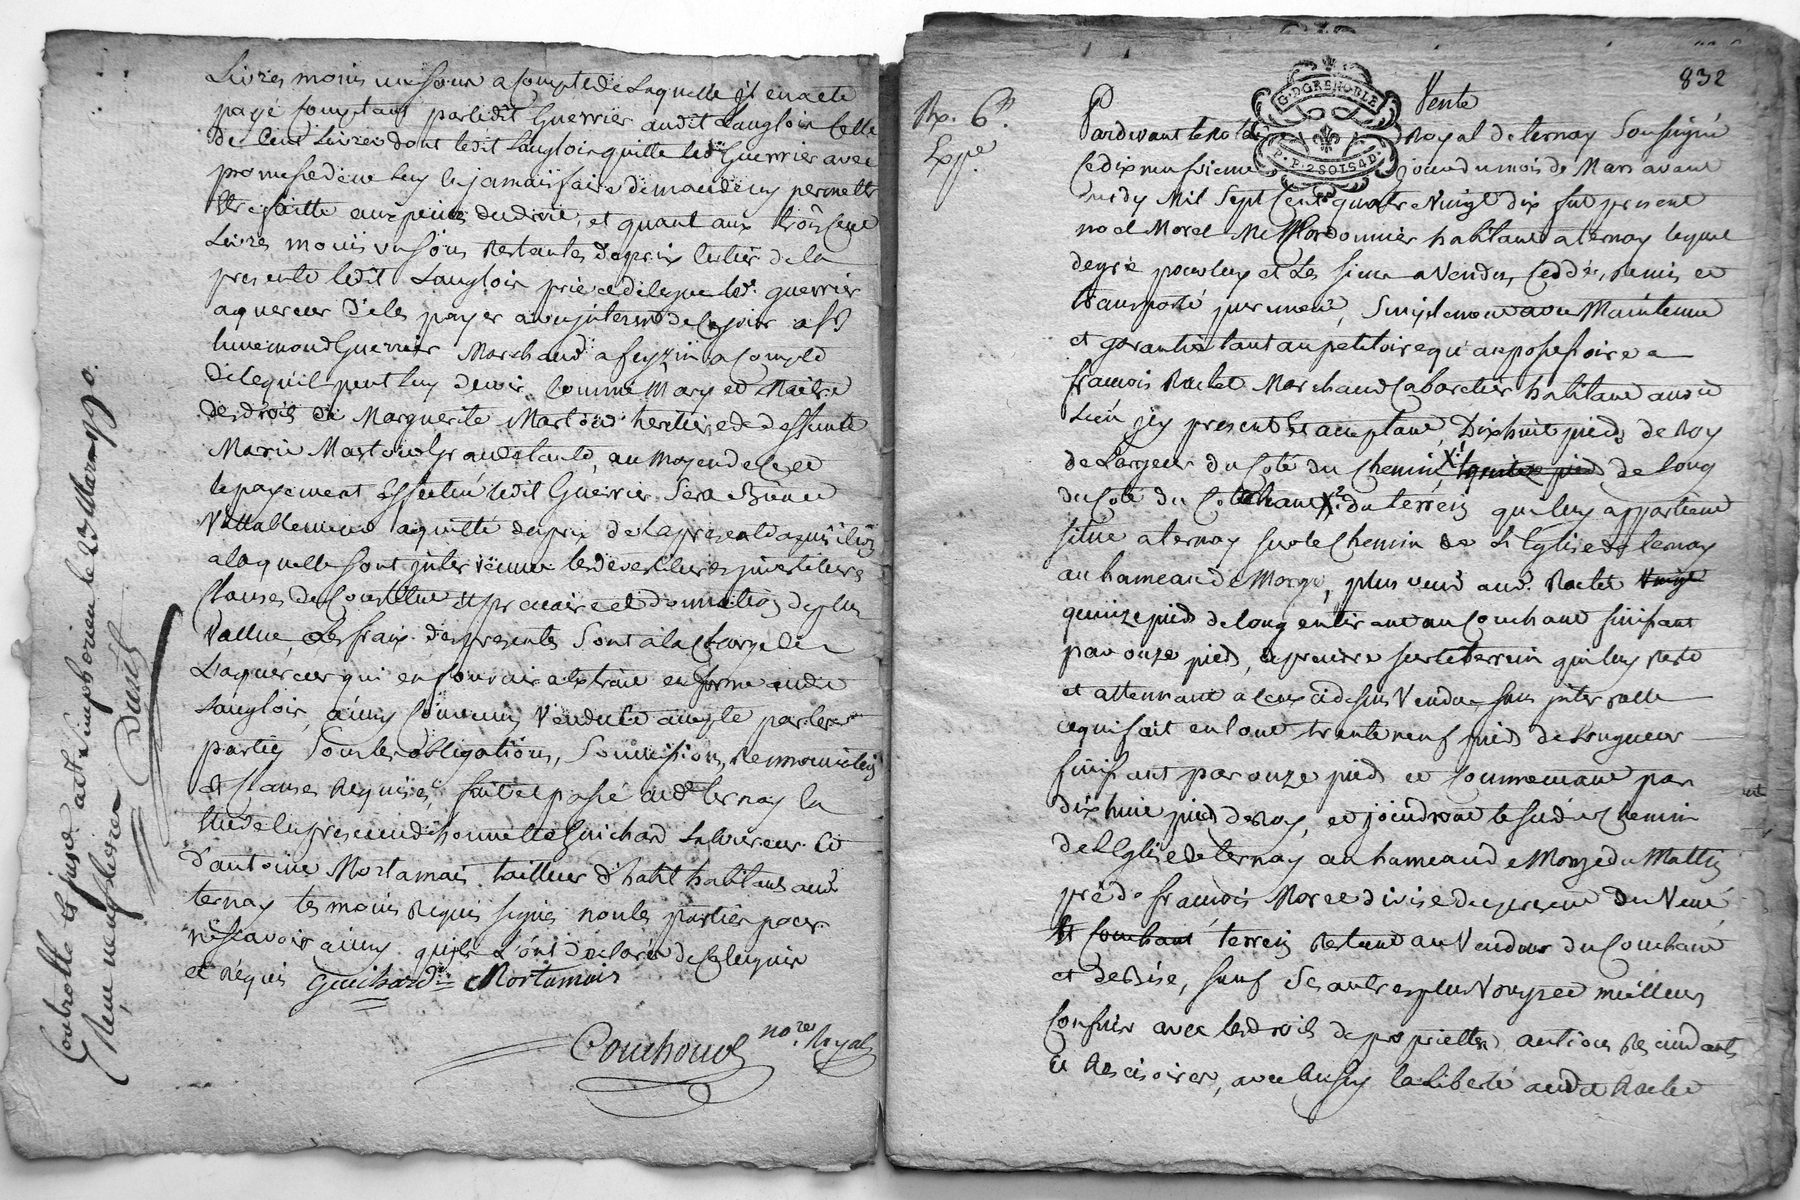 Livres moins un sour a compte de Laquelle il en a ete
payé comptant par ledit Guerrier audit Langlois Celle
de Cent Livres dont ledit Langlois quitte led. Guerrier avec
promesse de ne luy en jamais faire demande ny permettre
etre faitte aux peines de droit, et quant aux trois Cent
Livres moins un sour Restantes du prix Entier de la
presente ledit Langlois prie et delegue led. guerrier
aquereur de les payer avec interest de Ce jour a Sr
humemond Guerrier Marchand a feyzin a Compte
de Ce qu'il peut luy devoir Comme Mary et Maitre
des droits de Marguerite Martoud heritiere de deffunte
Marie Martoud sa tante, au Moyen de Ce et
le payement Effectué ledit Guerrier Sera Bien et
Vallablement aquitté du prix de la presente aquisition
a laquelle sont intervenue les devestitures investitures
Clauses de Constitut et precaire et donnation de plus
Vallue, Les fraix des presentes sont a la Charge de
L'aquereur qui en fournira extrait en forme audit
Langlois, ainsy Convenu Vendu et accepté par les
parties sous les obligations, soumissions, Renonciations
et Clauses Requises, fait et passé aud. ternay la
Etude en presence d'honnette Guichard Laboureur et
d'antoine Mortamais tailleur d'habit habitants aud.
ternay temoins Requis signés non les parties pour
ne sçavoir ainsy qu'ils L'ont declaré de Ce enquis
et Requis Guichard Mortamais
Couchoud no.re Royal
Controllé et insinué a St. Simphorien le 23 Mars 1790.
Reçu neuf livres
832
Rx. 6
Expé
G. D GRENOBLE
P. P. 2 SOLS 4 D.
Vente
Pardevant le Notaire Royal de ternay Soussigné
Ce dix neuvieme jour du mois de Mars avant
midy Mil Sept Cent quatre Vingt dix fut present
noel Morel Me Cordonnier habitant a ternay lequel
de gré pour luy et Les siens a Vendu, Ceddé, Remis et
transporté purement, Simplement avec Maintenue
et garantie tant au petitoire qu'au possessoire a
françois Rachet Marchand Cabaretier habitant audit
Lieu icy present et acceptant, Dix huit pieds de Roy
de Largeur du Coté du Chemin, quinze pieds de Long
du Coté du Couchant du terrein qui luy appartient
situé a ternay sur le Chemin de L'Eglise de ternay
au hameau de Morze, plus vend aud. Rachet vingt
quinze pieds de long en tirant au Couchant finissant
par onze pieds, a prendre sur le terrein qui luy Reste
et attennant a Celuy cidessus Vendu sans intervalle
ce qui fait en tout trente neuf pieds de Longueur
finissant par onze pieds et Commençant par
dix huit pieds de Roy, et joindront le susdit Chemin
de L'Eglise de ternay au hameau de Morze du Matin
pré de françois Morel divisé du present du Vent,
et Couchant terrein Restant au Vendeur du Couchant
et de Bise, sauf Ses autres plus Vrays et meilleurs
Confins avec les droits de proprietté, actions Rescindants
et Rescisoires, avec aussy la Liberté audit Rachet